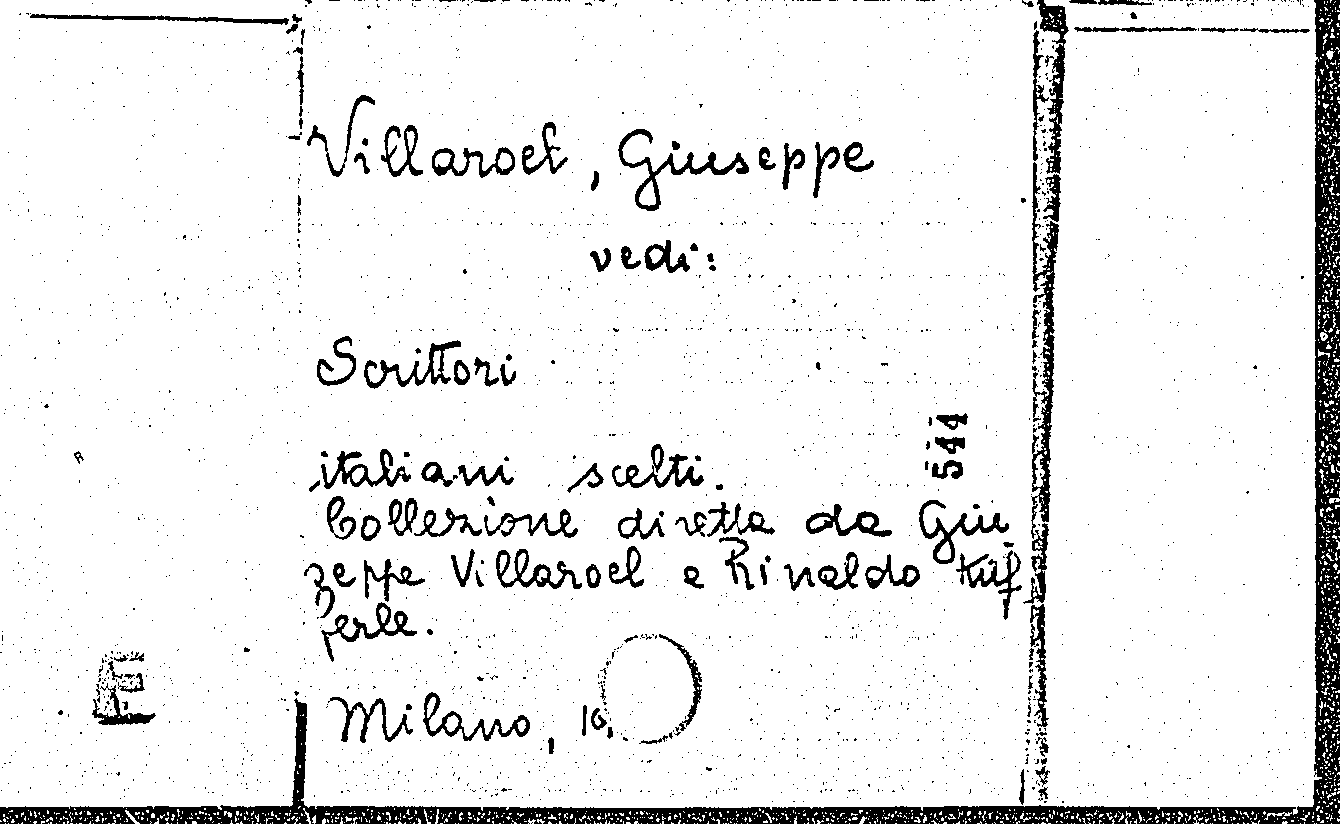 Villaroel, Giuseppe
vedi:
Scrittori
544
italiani scelti.
Collezione diretta da Giu
seppe Villaroel e Rinaldo Küf
ferle.
E
Milano, 19